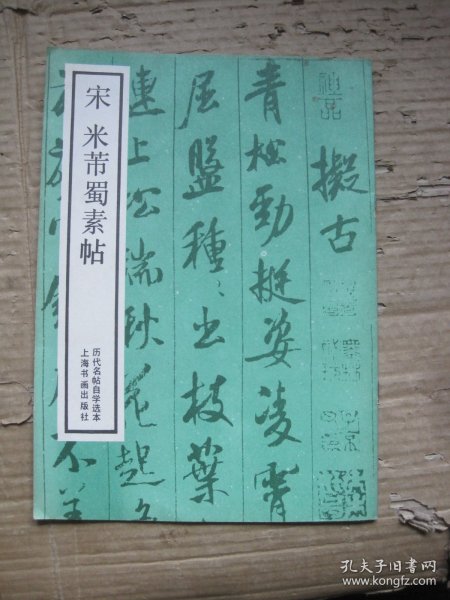 宋 米芾蜀素帖
历代名帖自学选本
上海书画出版社
擬古
青松勁挺姿凌霄
屈盤種々出枝葉
連上松端秋花起
孔夫子旧书网
www.kongfz.com